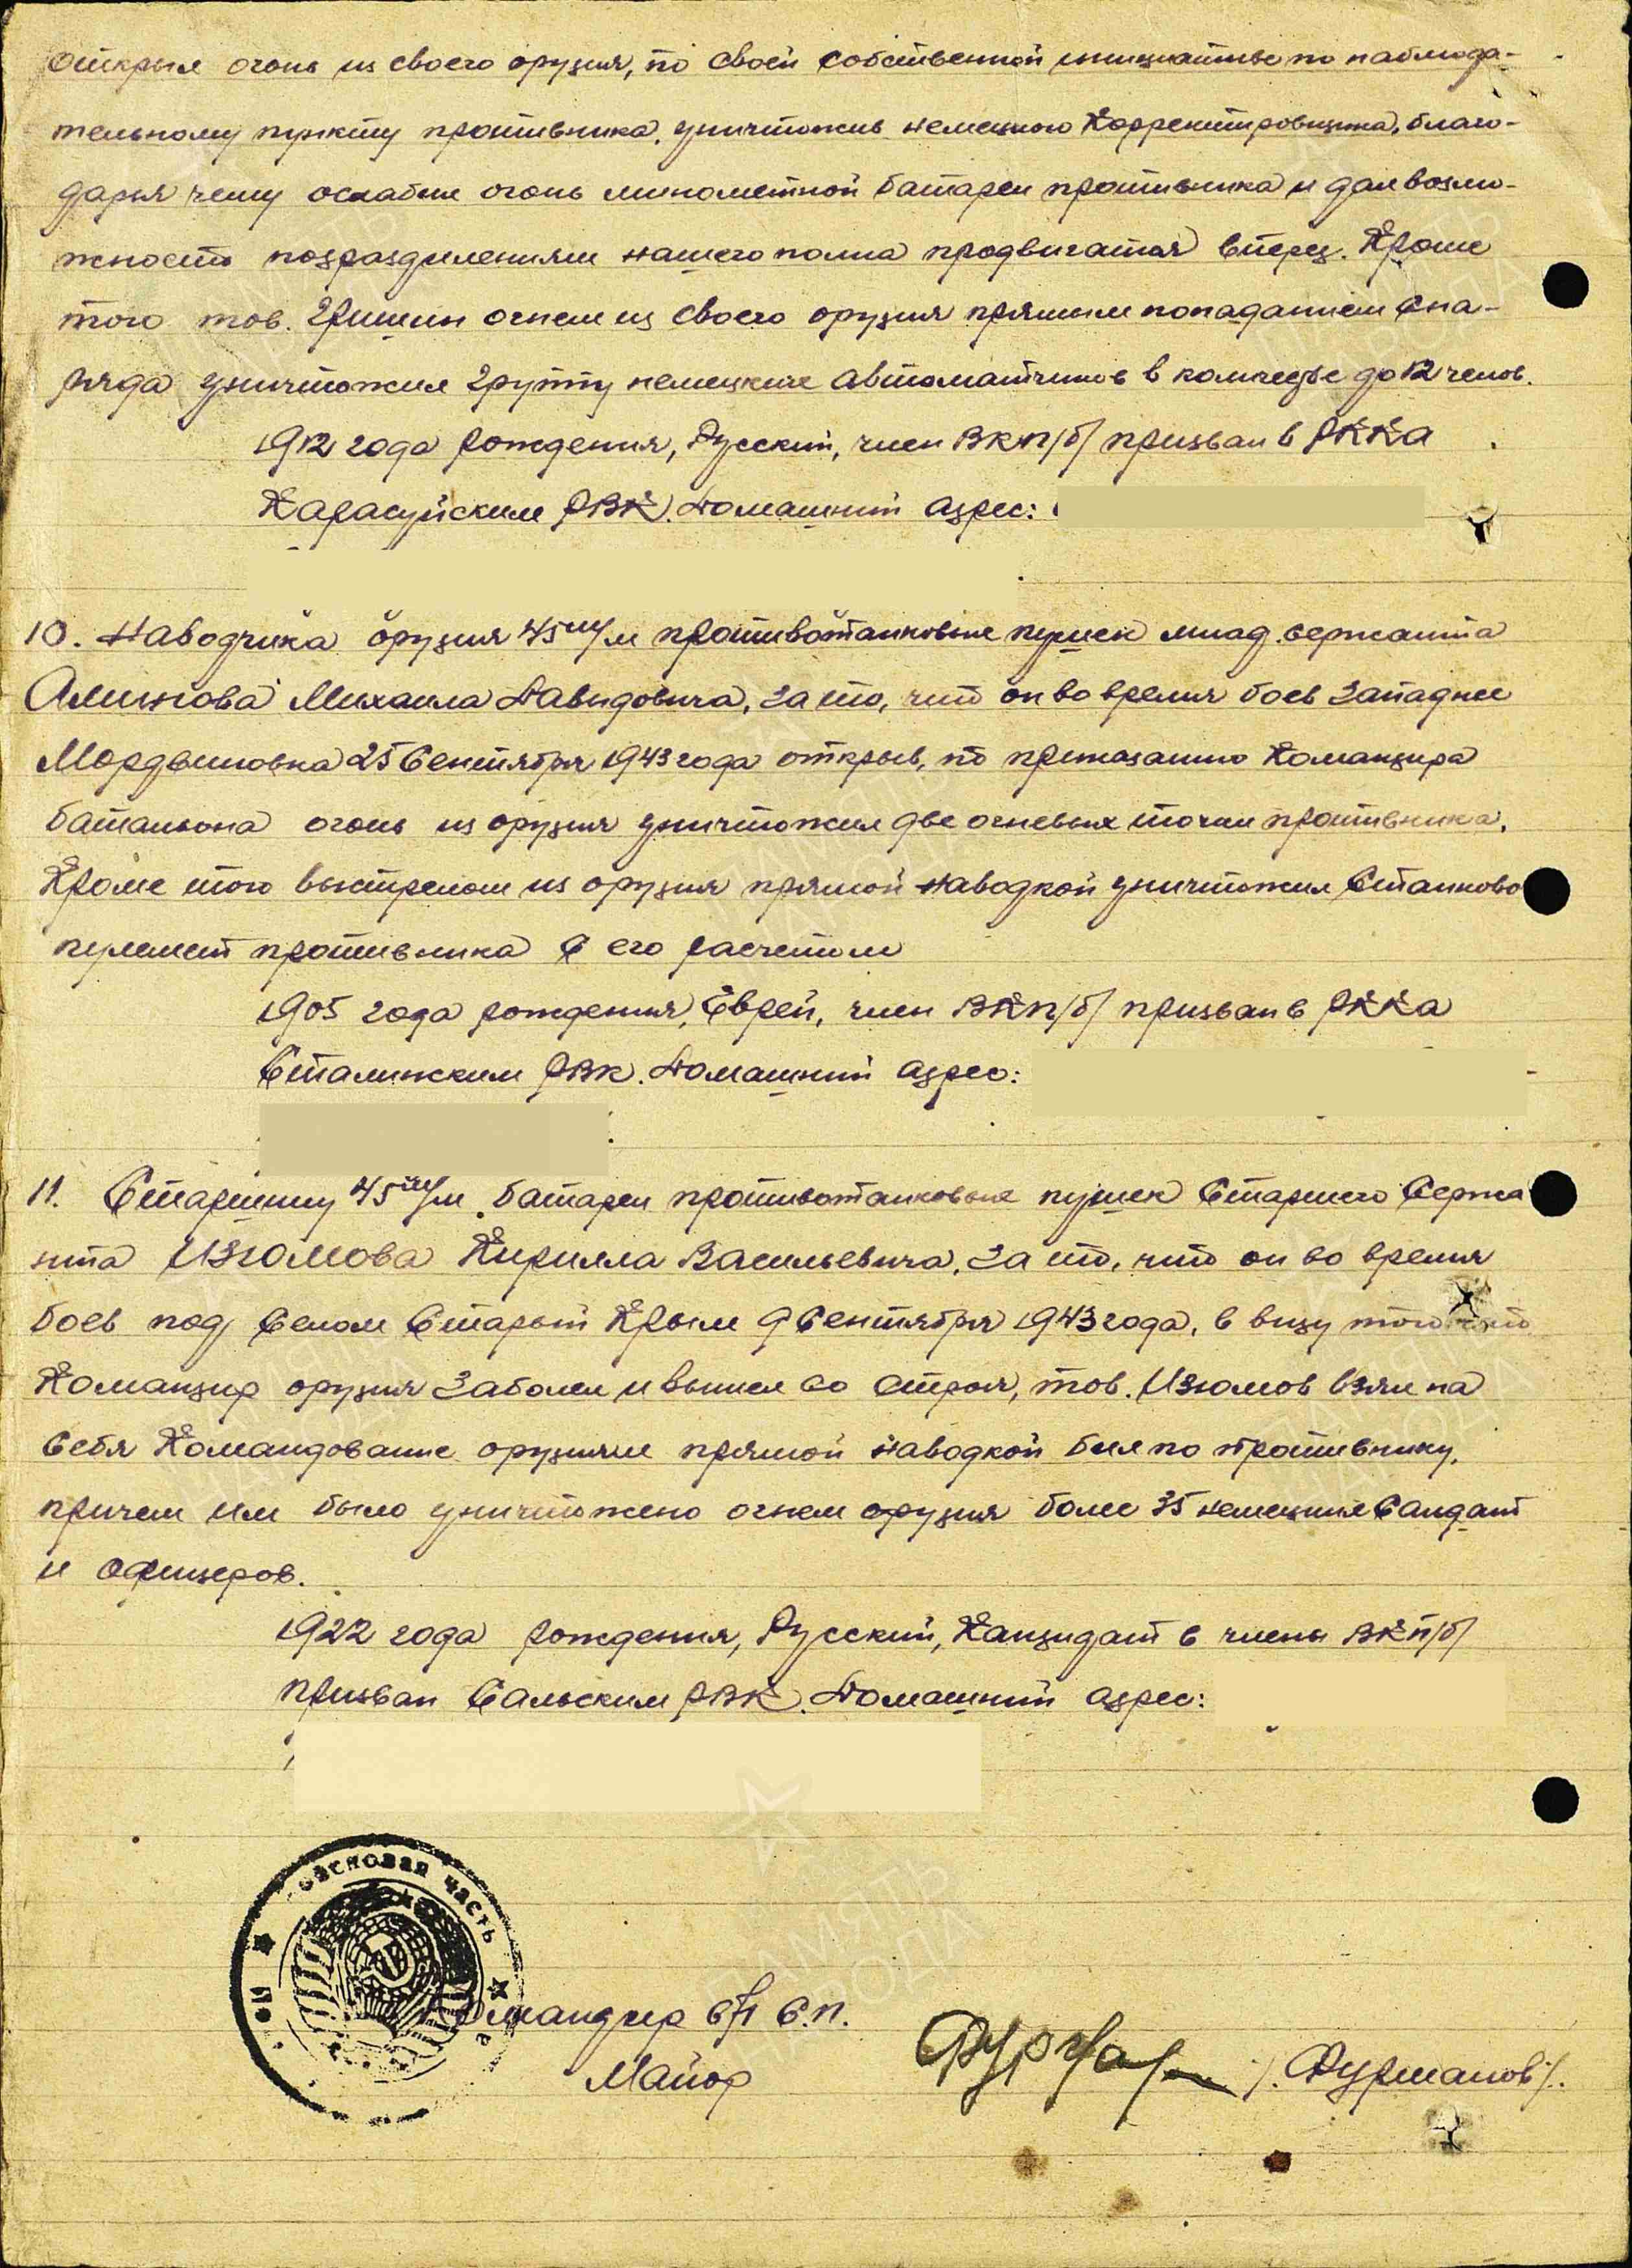 открыл огонь из своего орудия, по своей собственной инициативе по наблюда-
тельному пункту противника, уничтожив немецкого Корректировщика, благо-
даря чему ослабил огонь минометной батареи противника и дал возмо-
жность подразделениям нашего полка продвигатся вперед. Кроме
того тов. Гришин огнем из своего орудия прямым попаданием сна-
ряда уничтожил группу немецких автоматчиков в количестве до 12 челов.
1912 года рождения, Русский, член ВКП/б/ призван в РККА
Карасуйским РВК. Домашний адрес:
10. Наводчика орудия 45 м/м противотанковых пушек млад. сержанта
Алишова Михаила Давыдовича, за то, что он во время боев западнее
Мордвиновка 25 Сентября 1943 года открыв, по приказанию Командира
батальона огонь из орудия уничтожил две огневых точки противника.
Кроме того выстрелом из орудия прямой наводкой уничтожил Станково
пулемет противника с его расчетом
1905 года рождения, Еврей, член ВКП/б/ призван в РККА
Сталинским РВК. Домашний адрес:
11. Старшину 45 м/м батареи противотанковых пушек Старшего Сержа
нта Изюмова Кирилла Васильевича, за то, что он во время
боев под Селом Старый Крым 9 Сентября 1943 года, в виду того что
Командир орудия заболел и вышел со строя, тов. Изюмов взял на
себя Командование орудиям прямой наводкой бил по противнику,
причем им было уничтожено огнем орудия более 35 немецких Салдат
и офицеров.
1922 года рождения, Русский, Кандидат в члены ВКП/б/
призван Сальским РВК. Домашний адрес:
часть
Командир 671 С.П.
Майор /Фурманов/.
ПАМЯТЬ
НАРОДА